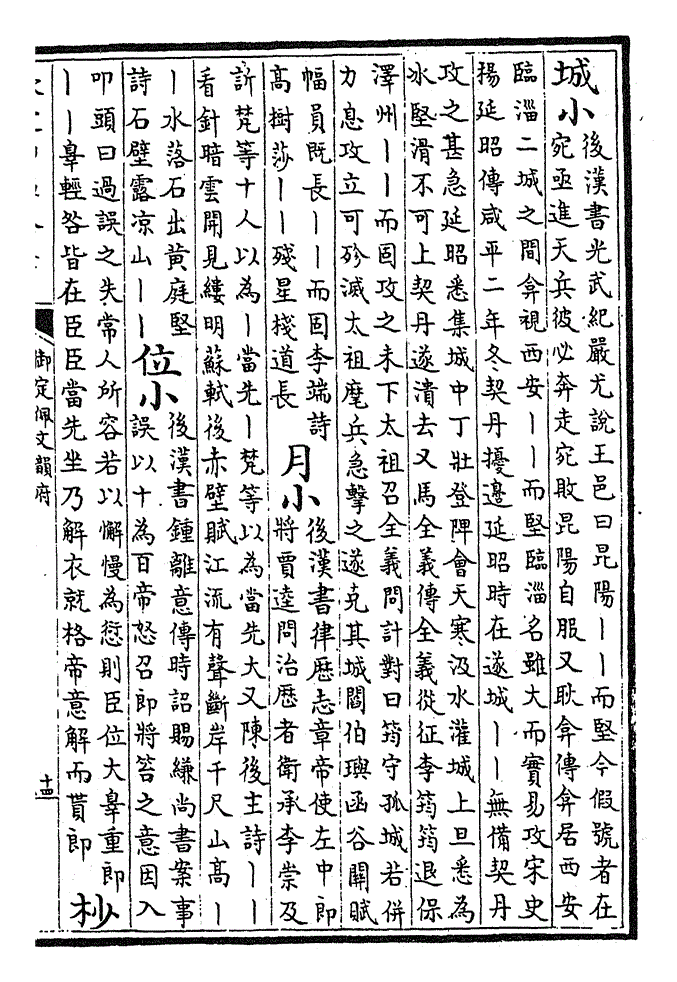 城小
後漢書光武紀嚴尤說王邑曰昆陽丨丨而堅今假號者在
宛亟進天兵彼必奔走宛敗昆陽自服又耿弇傳弇居西安
臨淄二城之間弇視西安丨丨而堅臨淄名雖大而實易攻宋史
揚延昭傳咸平二年冬契丹擾邊延昭時在遂城丨丨無備契丹
攻之甚急延昭悉集城中丁壯登陴會天寒汲水灌城上旦悉為
氷堅滑不可上契丹遂潰去又馬全義傳全義從征李筠筠退保
澤州丨丨而固攻之未下太祖召全義問計對曰筠守孤城若併
力息攻立可殄滅太祖麾兵急擊之遂克其城閻伯璵函谷關賦
幅員既長丨丨而固李端詩
高樹莎丨丨殘星棧道長
月小
後漢書律歷志章帝使左中郎
將賈逵問治歷者衛承李崇及
訢梵等十人以為丨當先丨梵等以為當先大又陳後主詩丨丨
看針暗雲開見縷明蘇軾後赤壁賦江流有聲斷岸千尺山高丨
丨水落石出黃庭堅
詩石壁露凉山丨丨
位小
後漢書鍾離意傳時詔賜縑尚書案事
誤以十為百帝怒召郎將笞之意因入
叩頭曰過誤之失常人所容若以懈慢為愆則臣位大辠重郎
丨丨辠輕咎皆在臣臣當先坐乃解衣就格帝意解而貰郎
杪
御定佩文韻府
十四